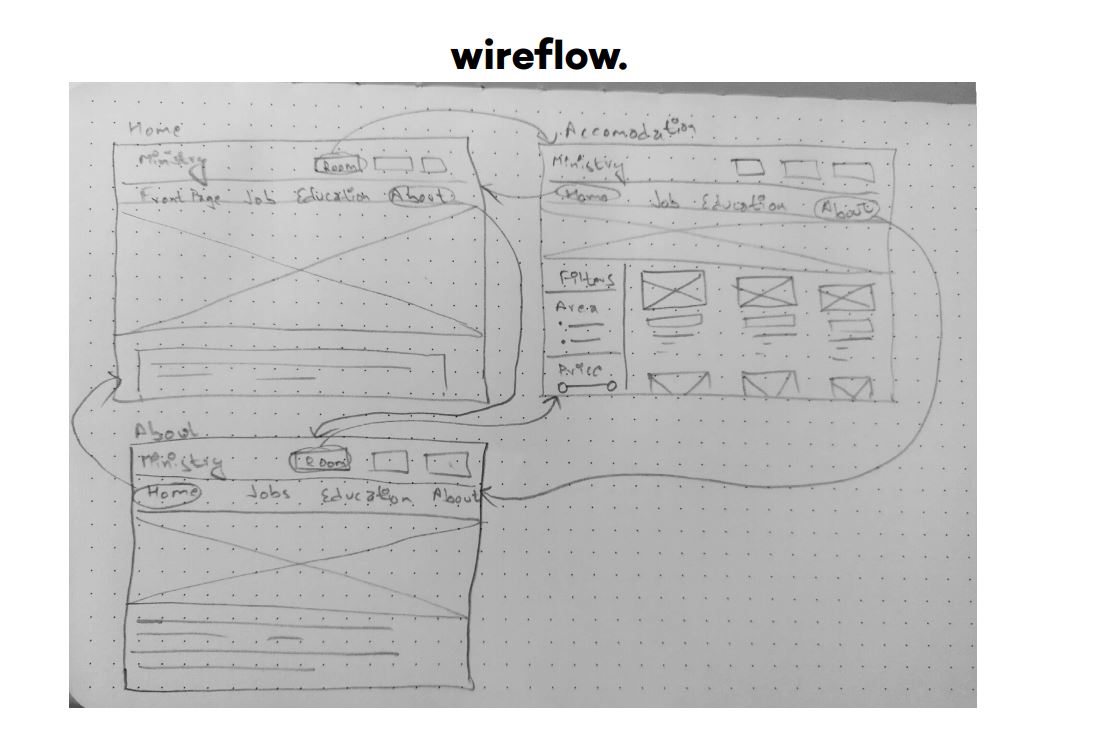 wireflow.
Home
Ministry
Room
Front Page Job Education About
Accomodation
Ministry
Home Job Education About
Filters
Area
Price
About
Ministry
Room
Home Jobs Education About